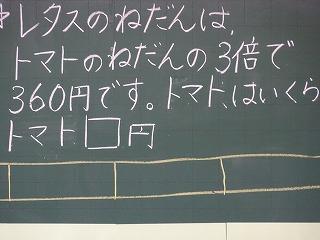 レタスのねだんは、
トマトのねだんの3倍で
360円です。トマトはいくら
トマト□円